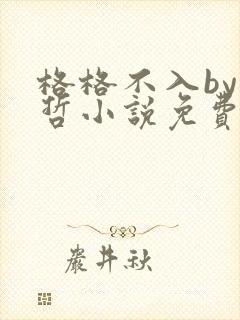 格格不入by
哲小說免費
嚴井秋